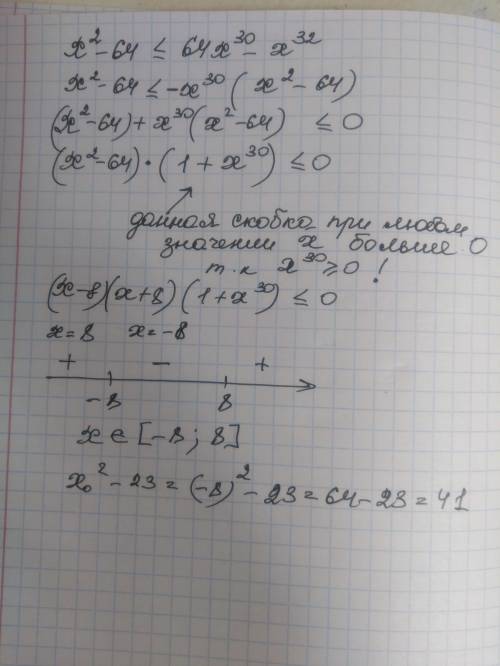 x² - 64 ≤ 64x³⁰ - x³²
x² - 64 ≤ -x³⁰ (x² - 64)
(x² - 64) + x³⁰ (x² - 64) ≤ 0
(x² - 64) · (1 + x³⁰) ≤ 0
данная скобка при любом
значении x больше 0
т.к x³⁰ ≥ 0 !
(x-8)(x+8)(1 + x³⁰) ≤ 0
x = 8 x = -8
+ - +
-8 8
x ∈ [-8; 8]
x₀² - 23 = (-8)² - 23 = 64 - 23 = 41